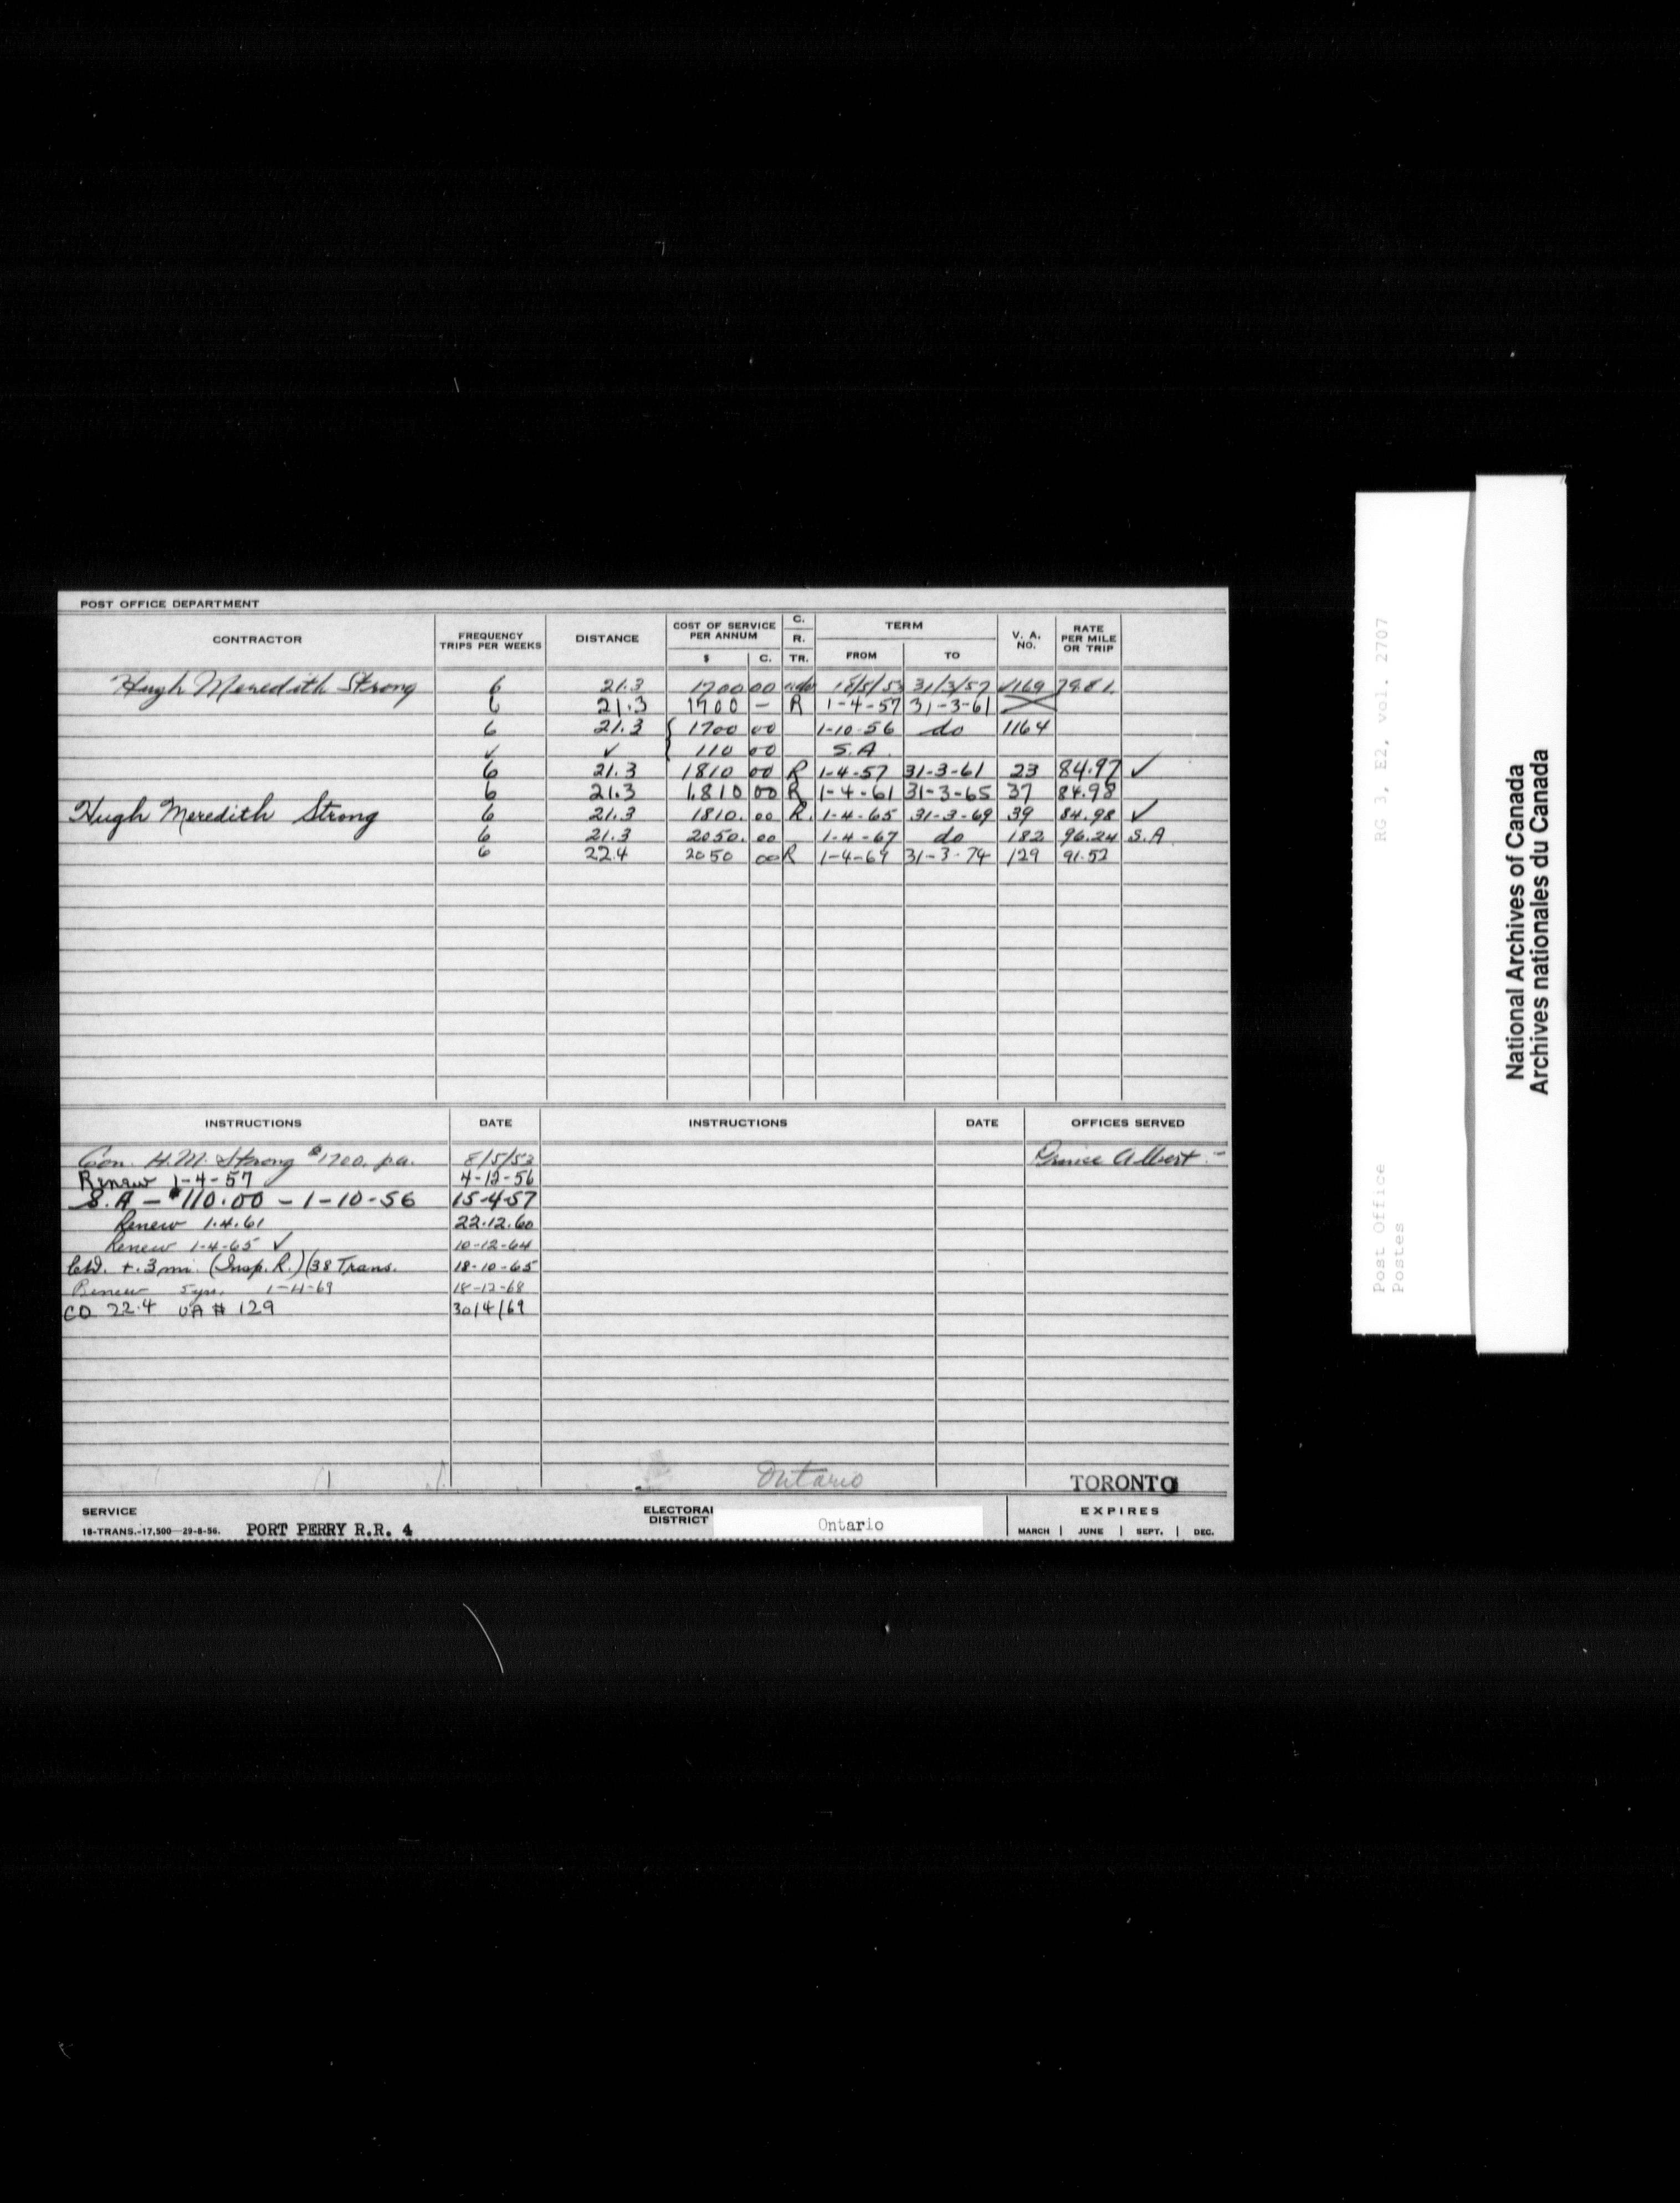 POST OFFICE DEPARTMENT
CONTRACTOR FREQUENCY TRIPS PER WEEKS DISTANCE COST OF SERVICE PER ANNUM $ C. C. R. TR. TERM FROM TO V. A. NO. RATE PER MILE OR TRIP
Hugh Meredith Strong 6 21.3 1700 00 18/5/53 31/3/57 1169 79.81
6 21.3 1700 — R 1-4-57 31-3-61
6 21.3 { 1700 00 1-10-56 do 1164
✓ ✓ { 110 00 S.A.
6 21.3 1810 00 R 1-4-57 31-3-61 23 84.97 ✓
6 21.3 1,810 00 R 1-4-61 31-3-65 37 84.98
Hugh Meredith Strong 6 21.3 1810. 00 R. 1-4-65 31-3-69 39 84.98 ✓
6 21.3 2050. 00 1-4-67 do 182 96.24 S.A.
6 22.4 2050 00 R 1-4-69 31-3-74 129 91.52
INSTRUCTIONS DATE INSTRUCTIONS DATE OFFICES SERVED
Con. H.M. Strong $1700. p.a. 8/5/53 Prince Albert -
Renew 1-4-57 4-12-56
S.A - $110.00 - 1-10-56 15-4-57
Renew 1.4.61 22.12.60
Renew 1-4-65 ✓ 10-12-64
+.3 mi. (Insp. R.) (38 Trans. 18-10-65
Renew 5 yrs. 1-4-69 18-12-68
CD 22.4 VA # 129 30/4/69
Ontario TORONTO
SERVICE ELECTORAL DISTRICT Ontario EXPIRES
18-TRANS.-17,500—29-8-56. PORT PERRY R.R. 4 MARCH | JUNE | SEPT. | DEC.
RG 3, E2, vol. 2707
Post Office
Postes
National Archives of Canada
Archives nationales du Canada